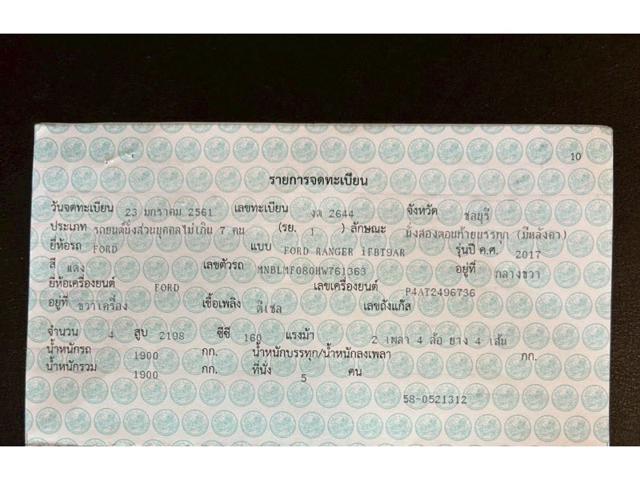 10
รายการจดทะเบียน
วันจดทะเบียน 23 มกราคม 2561 เลขทะเบียน งด 2644 จังหวัด ชลบุรี
ประเภท รถยนต์นั่งส่วนบุคคลไม่เกิน 7 คน (รย. 1 ) ลักษณะ นั่งสองตอนท้ายบรรทุก (มีหลังคา)
ยี่ห้อรถ FORD แบบ FORD RANGER 1FBT9AR รุ่นปี ค.ศ. 2017
สี แดง เลขตัวรถ MNBLMF080HW761363 อยู่ที่ กลางขวา
ยี่ห้อเครื่องยนต์ FORD เลขเครื่องยนต์ P4AT2496736
อยู่ที่ ขวาเครื่อง เชื้อเพลิง ดีเซล เลขถังแก๊ส
จำนวน 4 สูบ 2198 ซีซี 160 แรงม้า 2 เพลา 4 ล้อ ยาง 4 เส้น
น้ำหนักรถ 1900 กก. น้ำหนักบรรทุก/น้ำหนักลงเพลา กก.
น้ำหนักรวม 1900 กก. ที่นั่ง 5 คน
58-0521312